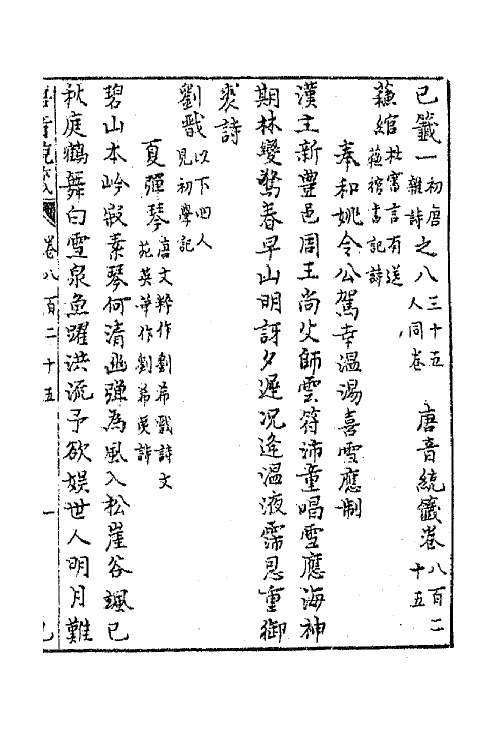 己籤一初唐雜詩之八三十五人同卷 唐音統籤卷八百二十五
蘇綰杜審言有送蘇綰書記詩
奉和姚令公駕幸温湯喜雪應制
漢主新豐邑周王尚父師雲符沛童唱雪應海神
期林變驚春早山明訝夕遲况逢温液霈恩重御
裘詩
劉戩以下四人見初學記
夏彈琴唐文粹作劉希戩詩文苑英華作劉希夷詩
碧山本岑寂素琴何清幽彈為風入松崖谷颯已
秋庭鶴舞白雪泉魚躍洪流予欲娛世人明月難
唐音統籤 卷八百二十五 一 己